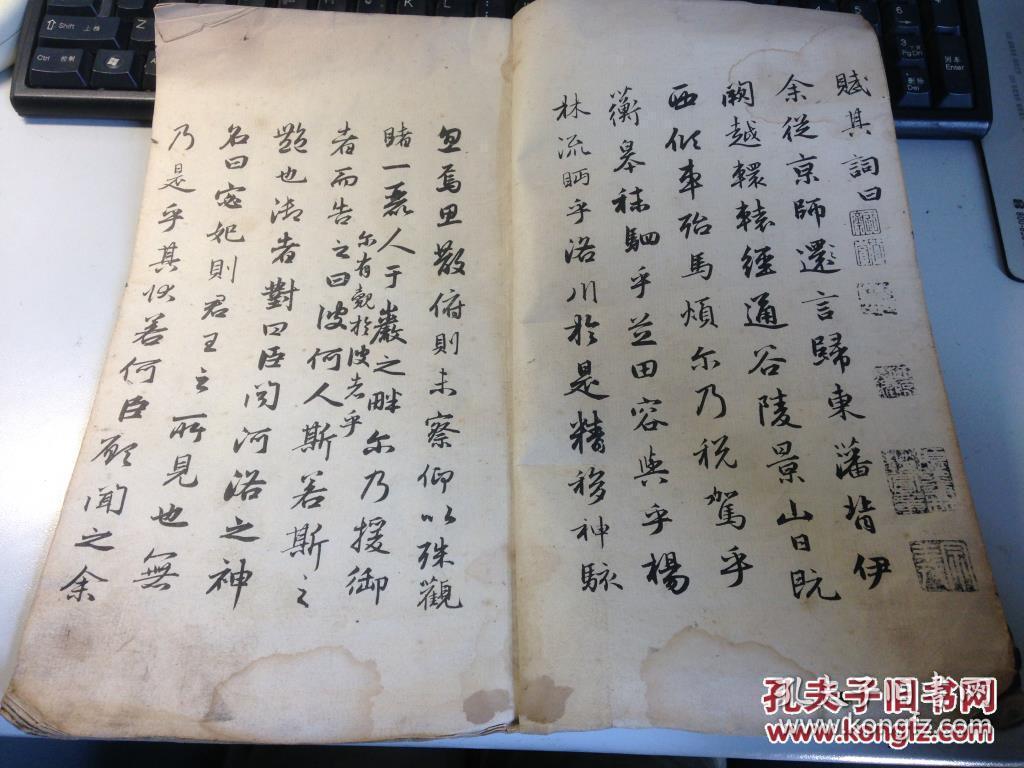 賦其詞曰
余從京師還言歸東藩背伊
闕越轘轅經通谷陵景山日既
西傾車殆馬煩尔乃税駕乎
蘅皋秣駟乎芝田容與乎楊
林流眄乎洛川於是精移神駭
忽焉思散俯則未察仰以殊觀
睹一麗人于巖之畔尔乃援御
者而告之曰尔有覿於彼者乎
彼何人斯若斯之
豔也御者對曰臣聞河洛之神
名曰宓妃則君王之所見也無
乃是乎其狀若何臣願聞之余
孔夫子旧书网
www.kongfz.com
Shift 上档
Ctrl 控制
Enter
PgDn
Del